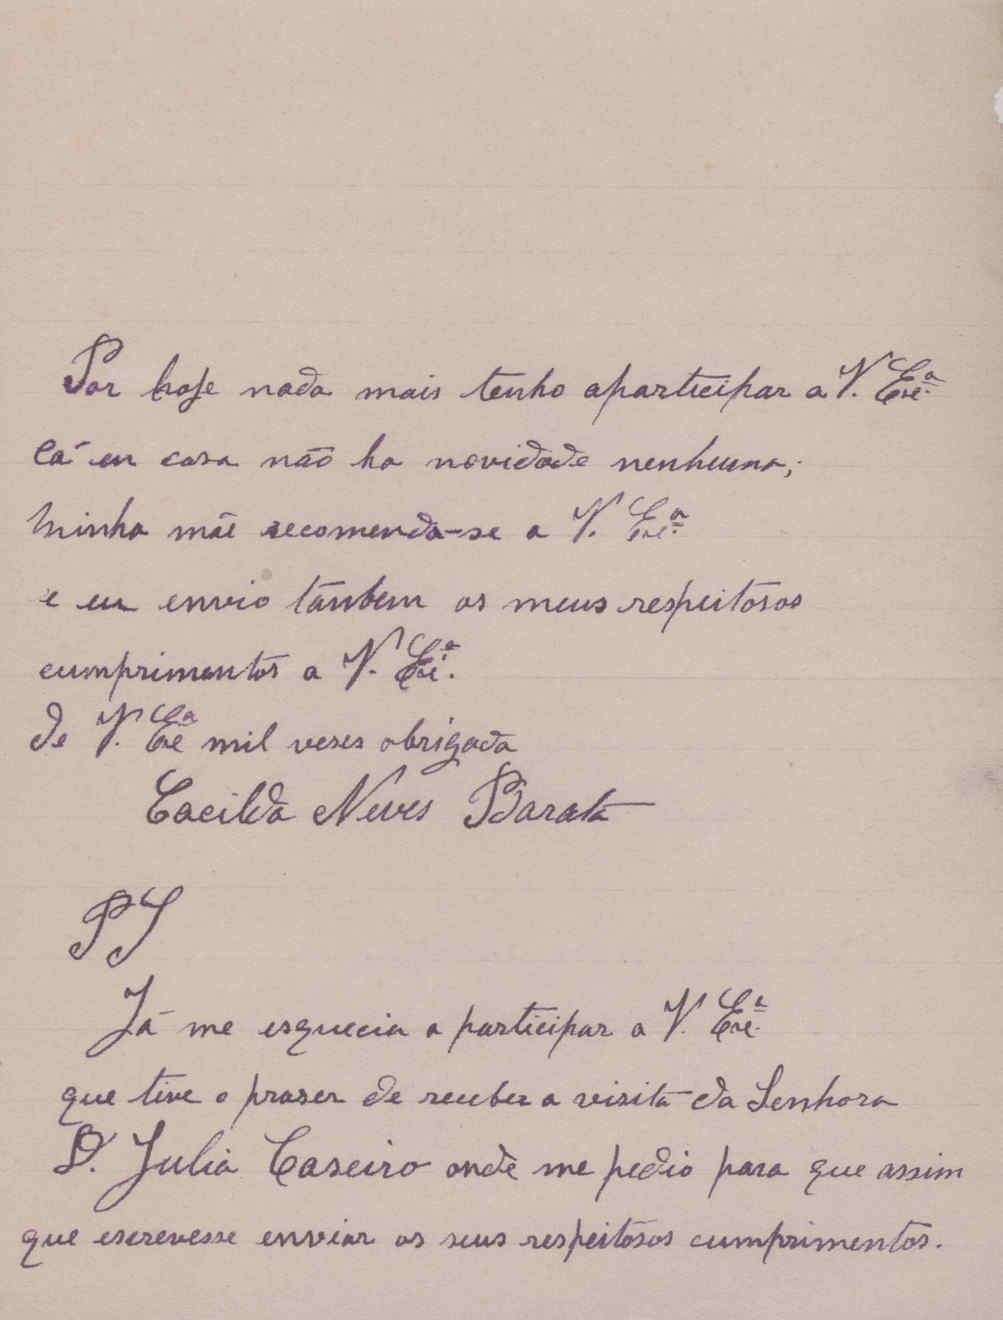 Por hoje nada mais tenho aparticipar a V. Exc.ª
Cá en casa não ha novidade nenhuma;
Minha mãe recomenda-se a V. Exc.ª
e eu envio tãnbem os meus respeitosos
cumprimentos a V. Exc.ª
de V. Excª mil veses obrigada
Cacilda Neves Barata
PS
Já me esquecia a participar a V. Exc.ª
que tive o praser de receber a visita da Senhora
D. Julia Caseiro onde me pedio para que assim
que escrevesse enviar os seus respeitosos cumprimentos.